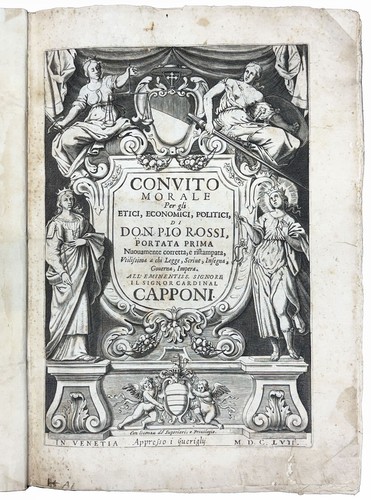 CONVITO
MORALE
Per gli
ETICI, ECONOMICI, POLITICI,
DI
DON PIO ROSSI,
PORTATA PRIMA
Nuouamente corretta, e ristampata,
Vtilissima a chi Legge, Scriue, Insegna,
Gouerna, Impera.
ALL'EMINENTISS. SIGNORE
IL SIGNOR CARDINAL
CAPPONI.
Con licenza de' Superiori, e Priuilegio.
IN VENETIA Appresso i Guerigly M. D. C. LVII.